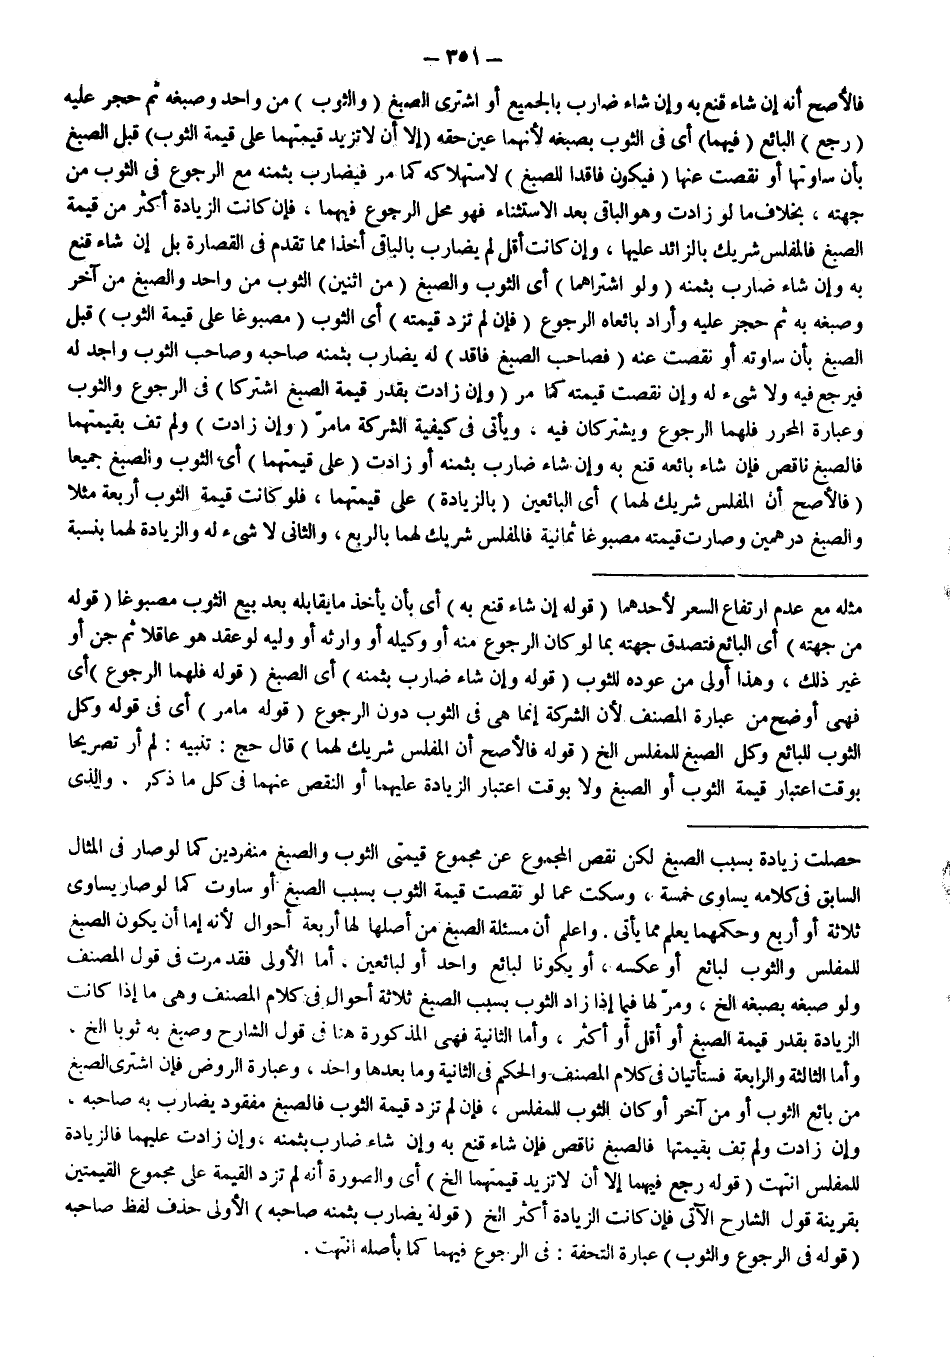 — ٣٥١ —
فالأصح أنه إن شاء قنع به وإن شاء ضارب بالجميع أو اشترى الصبغ ( والثوب ) من واحد وصبغه ثم حجر عليه
( رجع ) البائع ( فيهما) أى فى الثوب بصبغه لأنهما عين حقه (إلا أن لاتزيد قيمتهما على قيمة الثوب) قبل الصبغ
بأن ساوتها أو نقصت عنها ( فيكون فاقدا للصبغ ) لاستهلاكه كما مر فيضارب بثمنه مع الرجوع فى الثوب من
جهته ، بخلاف ما لو زادت وهو الباقى بعد الاستثناء فهو محل الرجوع فيهما ، فإن كانت الزيادة أكثر من قيمة
الصبغ فالمفلس شريك بالزائد عليها ، وإن كانت أقل لم يضارب بالباقى أخذا مما تقدم فى القصارة بل إن شاء قنع
به وإن شاء ضارب بثمنه ( ولو اشتراهما ) أى الثوب والصبغ ( من اثنين) الثوب من واحد والصبغ من آخر
وصبغه به ثم حجر عليه وأراد بائعاه الرجوع ( فإن لم تزد قيمته ) أى الثوب ( مصبوغا على قيمة الثوب ) قبل
الصبغ بأن ساوته أو نقصت عنه ( فصاحب الصبغ فاقد ) له يضارب بثمنه صاحبه وصاحب الثوب واجد له
فيرجع فيه ولا شىء له وإن نقصت قيمته كما مر ( وإن زادت بقدر قيمة الصبغ اشتركا ) فى الرجوع والثوب
وعبارة المحرر فلهما الرجوع ويشتركان فيه ، ويأتى فى كيفية الشركة مامرّ ( وإن زادت ) ولم تف بقيمتهما
فالصبغ ناقص فإن شاء بائعه قنع به وإن شاء ضارب بثمنه أو زادت ( على قيمتهما ) أى الثوب والصبغ جميعا
( فالأصح أن المفلس شريك لهما ) أى البائعين ( بالزيادة ) على قيمتهما ، فلو كانت قيمة الثوب أربعة مثلا
والصبغ درهمين وصارت قيمته مصبوغا ثمانية فالمفلس شريك لهما بالربع ، والثانى لا شىء له والزيادة لهما بنسبة
مثله مع عدم ارتفاع السعر لأحدهما ( قوله إن شاء قنع به ) أى بأن يأخذ مايقابله بعد بيع الثوب مصبوغا ( قوله
من جهته ) أى البائع فتصدق جهته بما لو كان الرجوع منه أو وكيله أو وارثه أو وليه لو عقد هو عاقلا ثم جن أو
غير ذلك ، وهذا أولى من عوده للثوب ( قوله وإن شاء ضارب بثمنه ) أى الصبغ ( قوله فلهما الرجوع )أى
فهى أوضح من عبارة المصنف لأن الشركة إنما هى فى الثوب دون الرجوع ( قوله مامر ) أى فى قوله وكل
الثوب للبائع وكل الصبغ للمفلس الخ ( قوله فالأصح أن المفلس شريك لهما ) قال حج : تنبيه : لم أر تصريحا
بوقت اعتبار قيمة الثوب أو الصبغ ولا بوقت اعتبار الزيادة عليهما أو النقص عنهما فى كل ما ذكر . والذى
حصلت زيادة بسبب الصبغ لكن نقص المجموع عن مجموع قيمتى الثوب والصبغ منفردين كما لو صار فى المثال
السابق فى كلامه يساوى خمسة ، وسكت عما لو نقصت قيمة الثوب بسبب الصبغ أو ساوت كما لو صار يساوى
ثلاثة أو أربع وحكمهما يعلم مما يأتى . واعلم أن مسئلة الصبغ من أصلها لها أربعة أحوال لأنه إما أن يكون الصبغ
للمفلس والثوب لبائع أو عكسه ، أو يكونا لبائع واحد أو لبائعين . أما الأولى فقد مرت فى قول المصنف
ولو صبغه بصبغه الخ ، ومرّ لها فيما إذا زاد الثوب بسبب الصبغ ثلاثة أحوال فى كلام المصنف وهى ما إذا كانت
الزيادة بقدر قيمة الصبغ أو أقل أو أكثر ، وأما الثانية فهى المذكورة هنا فى قول الشارح وصبغ به ثوبا الخ .
وأما الثالثة والرابعة فستأتيان فى كلام المصنف والحكم فى الثانية وما بعدها واحد ، وعبارة الروض فإن اشترى الصبغ
من بائع الثوب أو من آخر أو كان الثوب للمفلس ، فإن لم تزد قيمة الثوب فالصبغ مفقود يضارب به صاحبه .
وإن زادت ولم تف بقيمتها فالصبغ ناقص فإن شاء قنع به وإن شاء ضارب بثمنه ، وإن زادت عليهما فالزيادة
للمفلس انتهت ( قوله رجع فيهما إلا أن لاتزيد قيمتهما الخ ) أى والصورة أنه لم تزد القيمة على مجموع القيمتين
بقرينة قول الشارح الآتى فإن كانت الزيادة أكثر الخ ( قوله يضارب بثمنه صاحبه ) الأولى حذف لفظ صاحبه
( قوله فى الرجوع والثوب ) عبارة التحفة : فى الرجوع فيهما كما بأصله انتهت .